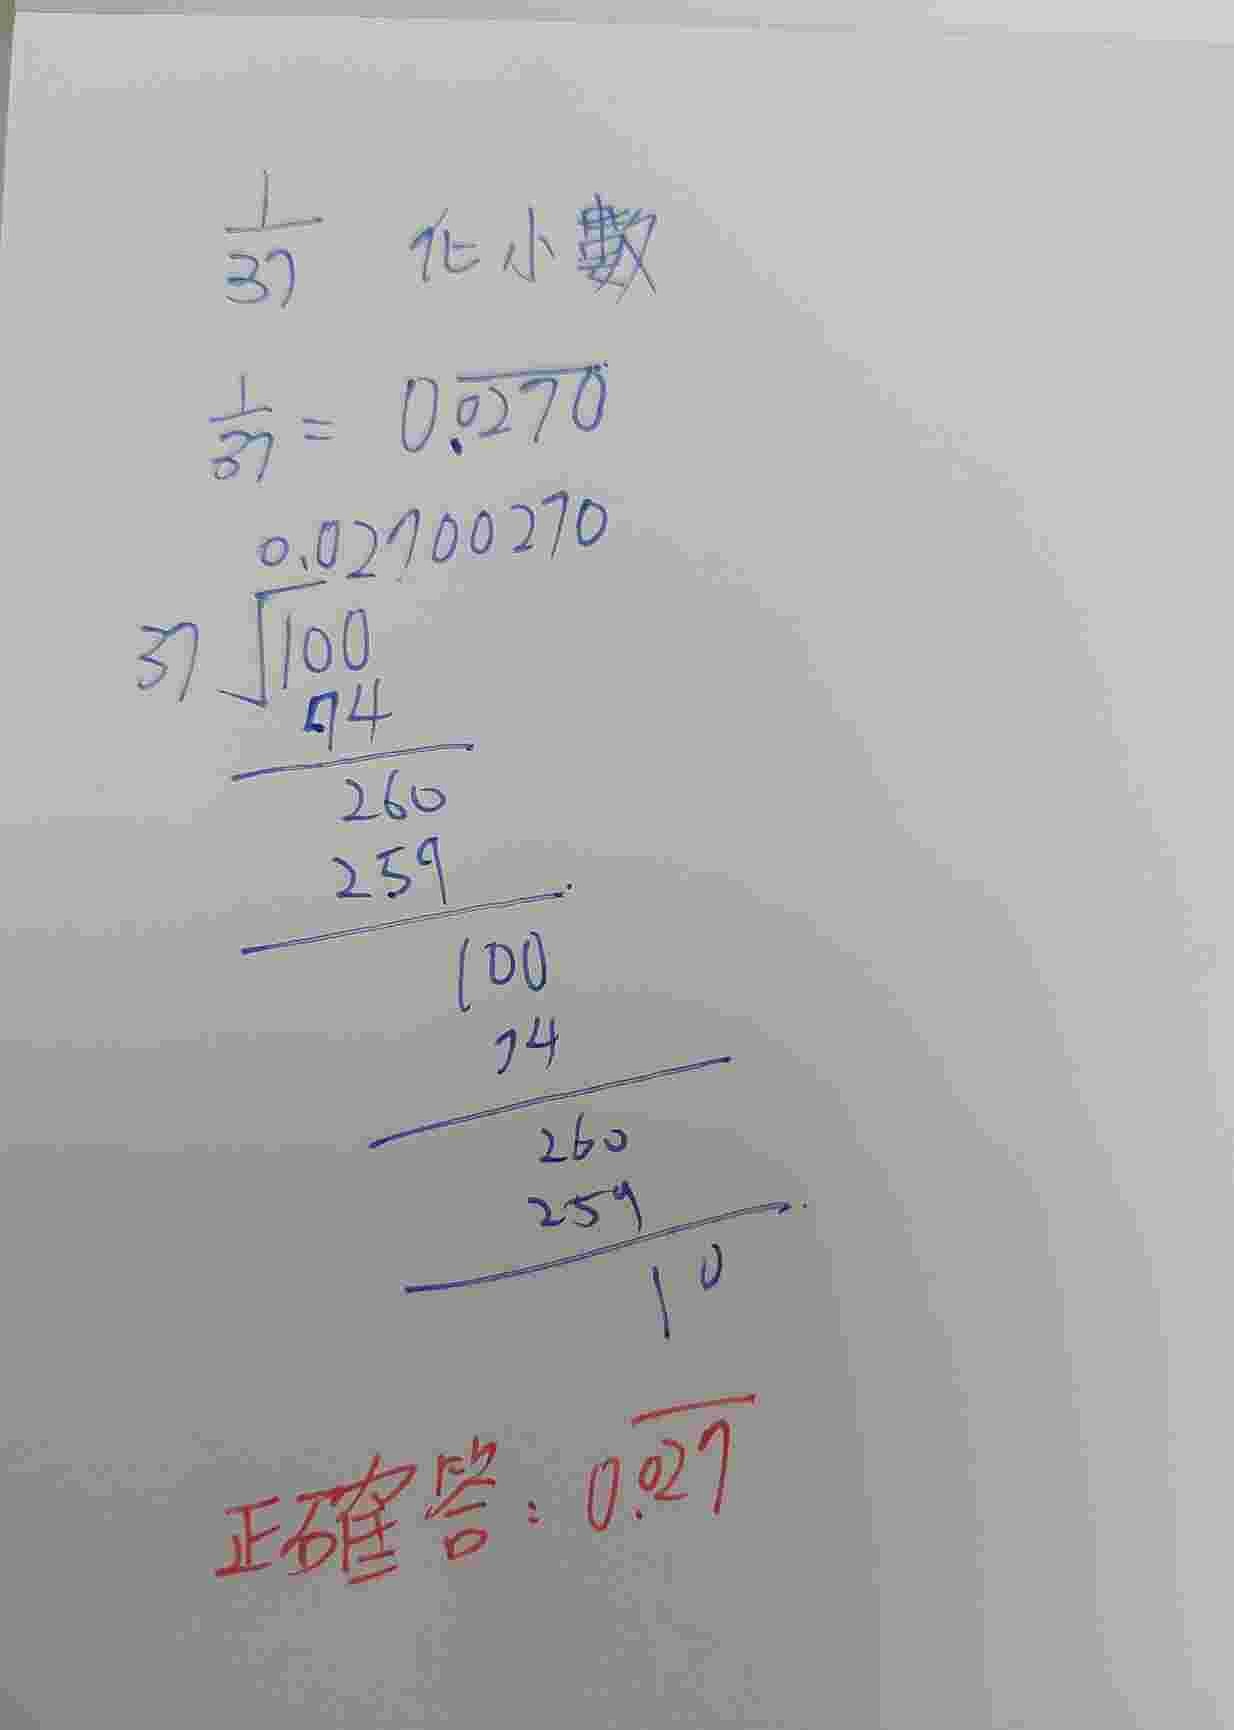 1/37 化小數
1/37 = 0.\overline{0270}
0.02700270
37 √100
74
260
259
100
74
260
259
10
正確答:0.\overline{027}